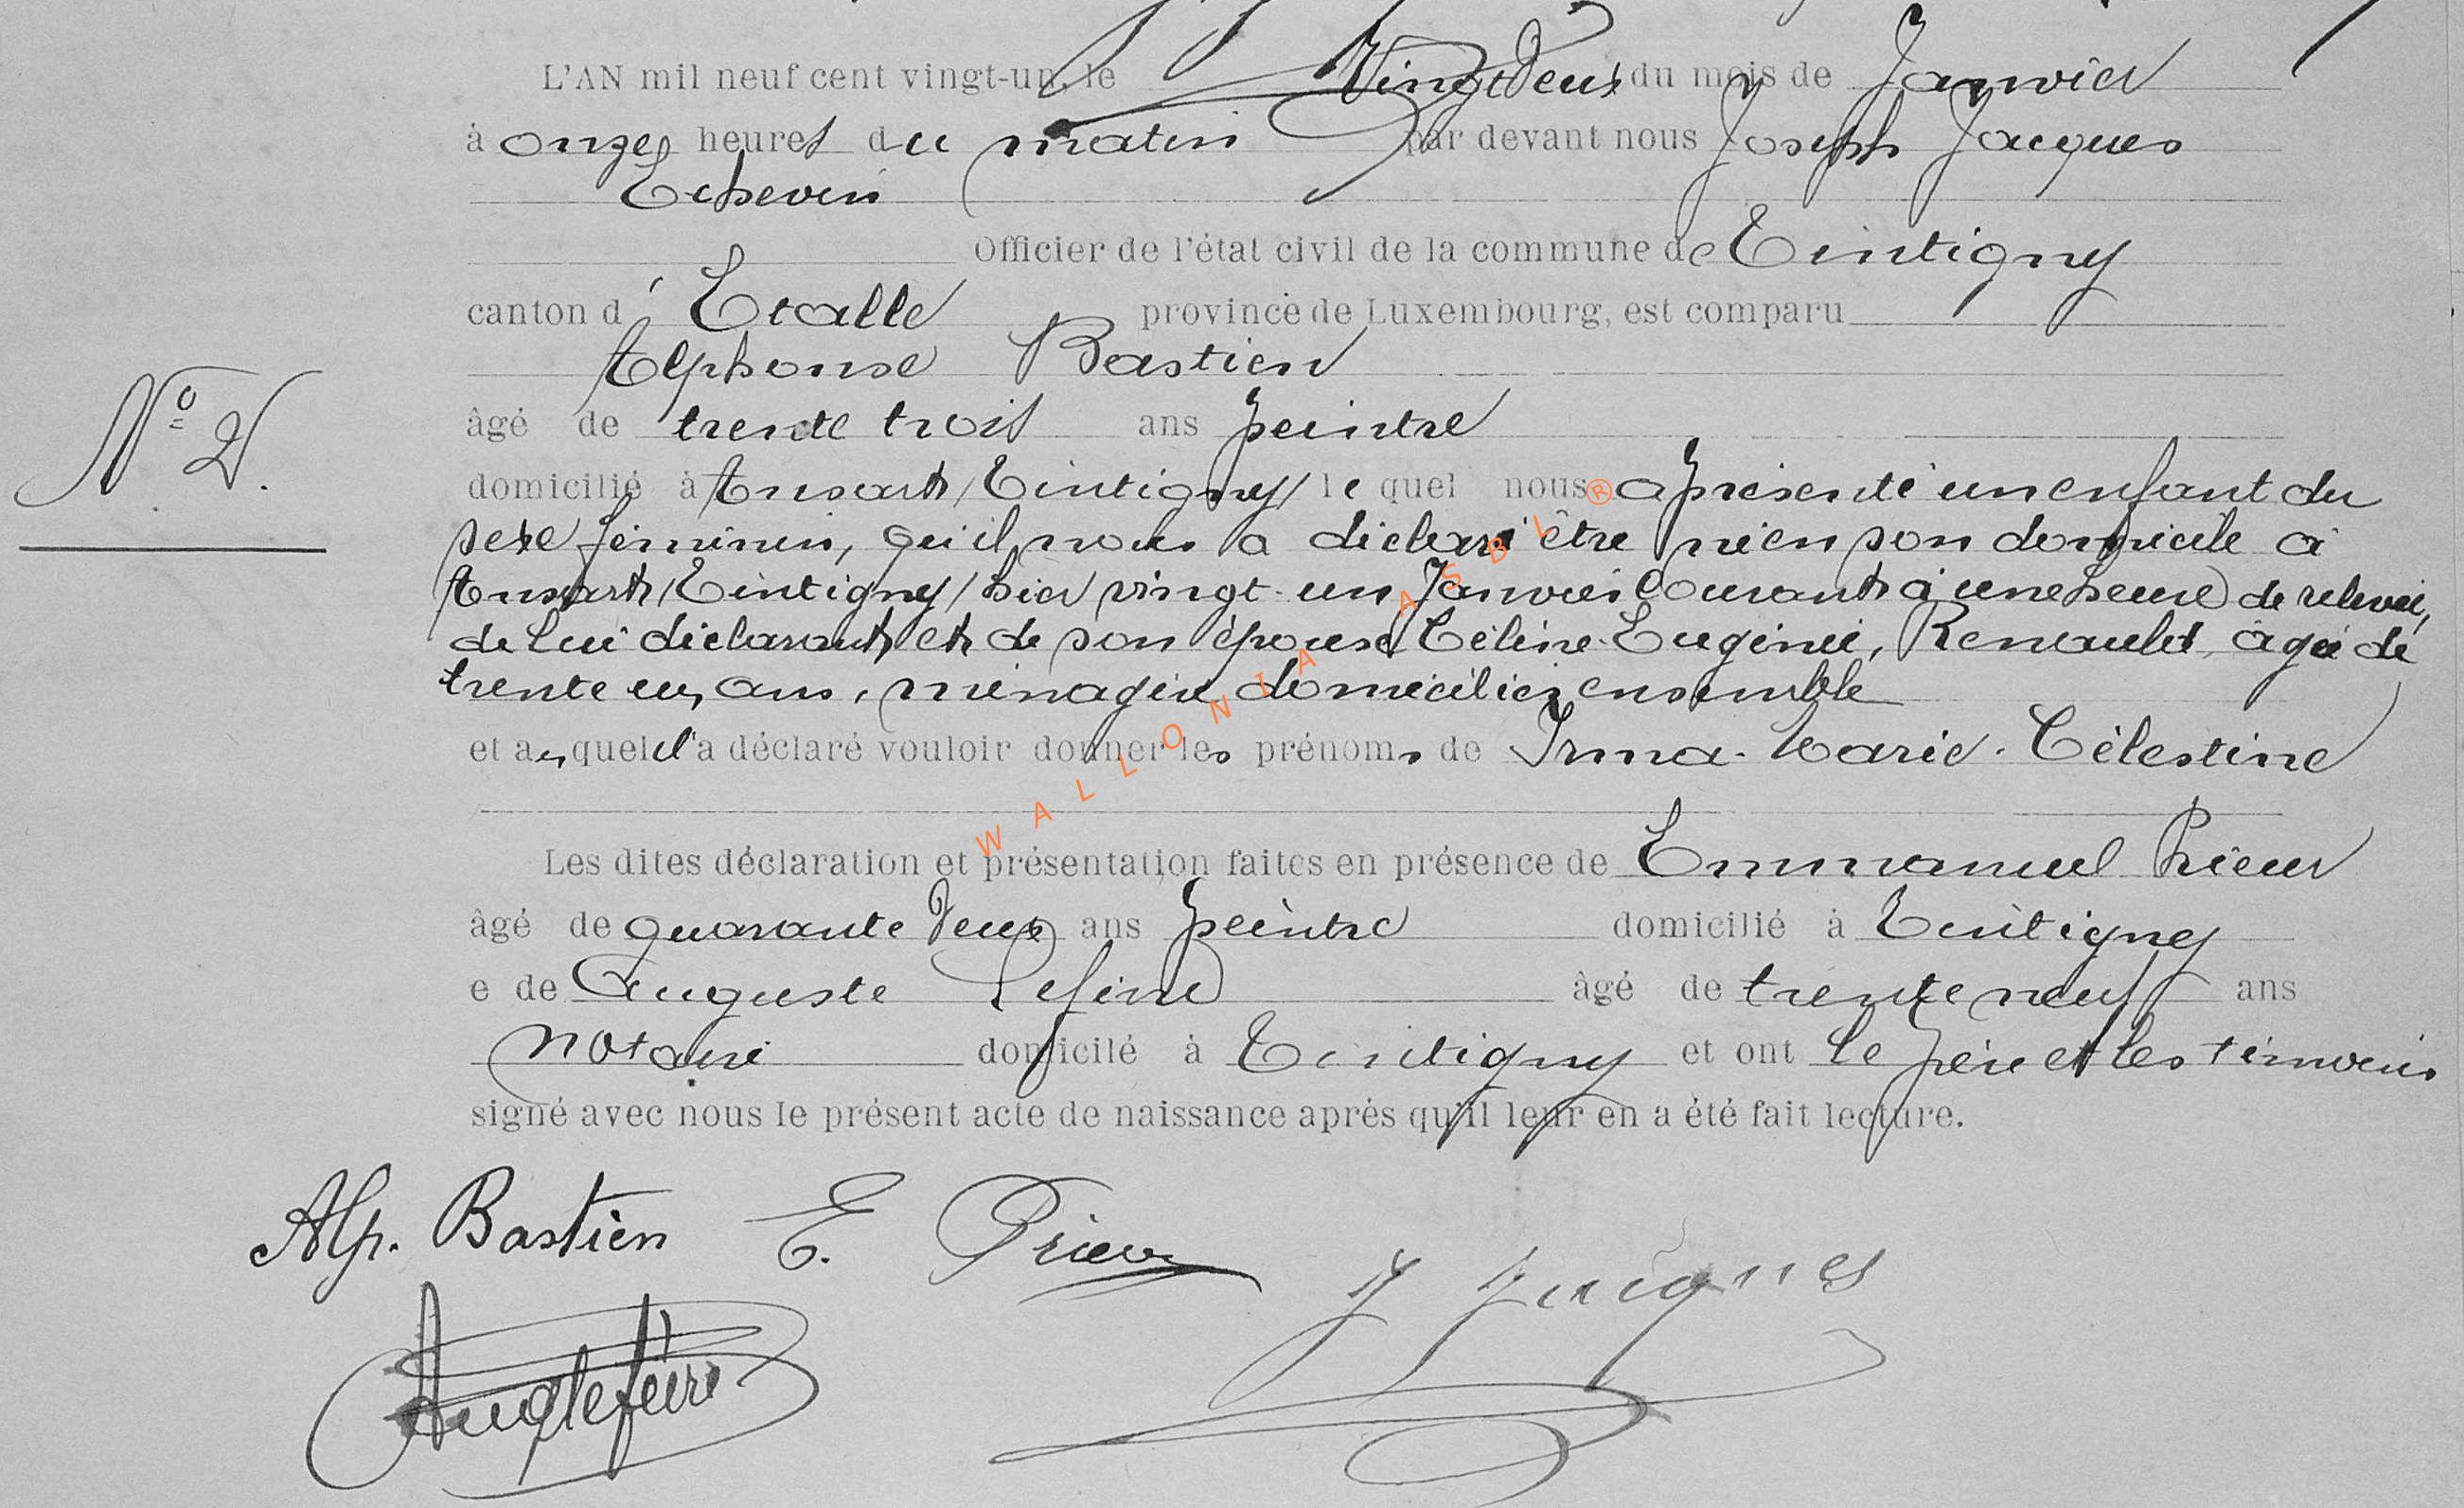 L'AN mil neuf cent vingt-un, le Vingt Deux du mois de Janvier
à onze heures du matin par devant nous Joseph Jacques
Echevin
Officier de l'état civil de la commune de Tintigny
canton d' Etalle province de Luxembourg, est comparu
Alphonse Bastien
âgé de trente trois ans peintre
N° 2.
domicilié à Ansart /Tintigny/ le quel nous a présenté un enfant du
sexe féminin, qu'il nous a déclaré être né en son domicile à
Ansart /Tintigny/ hier vingt-un Janvier courant à une heure de relevée,
de lui déclarant et de son épouse Céline-Eugénie, Renauld, âgée de
trente un ans, ménagère domiciliés ensemble
et auquel il a déclaré vouloir donner les prénoms de Irma-Marie-Célestine
Les dites déclaration et présentation faites en présence de Emmanuel Prieur
âgé de quarante Deux ans peintre domicilié à Tintigny
e de Auguste Lefèvre âgé de trente neuf ans
notaire domicilé à Tintigny et ont le père et les témoins
signé avec nous le présent acte de naissance après qu'il leur en a été fait lecture.
Alp. Bastien E. Prieur
J Jacques
Aug Lefèvre
WALLONIA ASBL ®